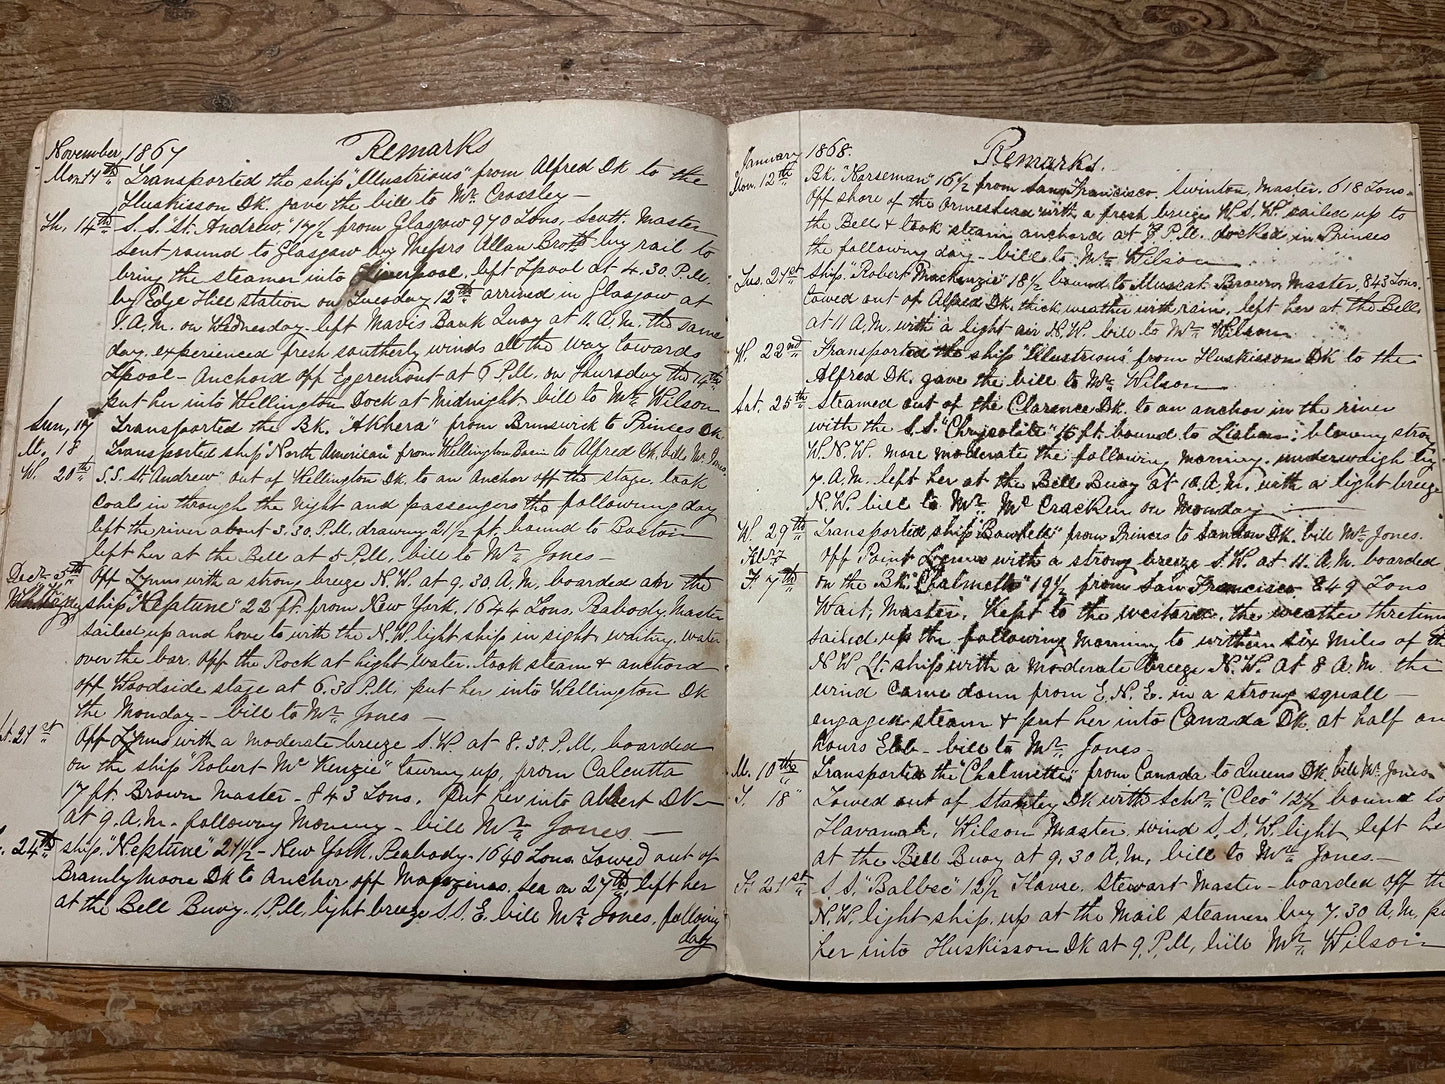 November 1867 Remarks
Mon 11th Transported the ship "Illustrious" from Alfred Dk to the
Huskisson Dk gave the bill to Mr Crossley —
Th. 14th S.S. "St. Andrew" 17½ from Glasgow 970 Tons, Scott. Master
sent round to Glasgow by Messrs Allan Broth by rail to
bring the steamer into Liverpool, left Lpool at 4.30. P.M.
by Edge Hill station on Tuesday 12th arrived in Glasgow at
1 A.M. on Wednesday left Mavis Bank Quay at 11. A.M. the same
day. experienced fresh southerly winds all the way towards
Lpool — Anchord off Egremont at 6 P.M. on Thursday the 14th
put her into Wellington Dock at Midnight bill to Mr Wilson
Sun, 17 Transported the Bk. "Akhera" from Brunswick to Princes Dk
M. 18 Transported ship "North American" from Wellington Basin to Alfred Dk. bill Mr Jones
W. 20th S.S. "St Andrew" out of Wellington Dk to an anchor off the stage. took
Coals in through the night and passengers the following day
left the river about 3.30. P.M, drawing 21½ ft. bound to Boston
left her at the Bell at 5 P.M., bill to Mr Jones —
Decr 5th Off Lynus with a strong breeze N.W. at 9.30 A.M. boarded the
ship "Neptune" 22 ft. from New York. 1644 Tons. Peabody. Master
sailed up and hove to with the N.W. light ship in sight waiting water
over the bar. off the Rock at hight water. took steam & anchord
off Woodside stage at 6.30 P.M. put her into Wellington Dk
the Monday — bill to Mr Jones —
21st Off Lynus with a moderate breeze S.W. at 8.30. P.M. boarded
on the ship "Robert Mc Kenzie" towing up, from Calcutta
17 ft. Brown Master — 843 Tons. Put her into Albert Dk —
at 9. A.M. following Morning — bill Mr Jones —
24th ship "Neptune" 21½ — New York. Peabody. 1640 Tons. Towed out of
Bramly Moore Dk to Anchor off Magazines. Sea on 27th left her
at the Bell Buoy. 1. P.M. light breeze S.S.E. bill Mr Jones. following
day
January 1868. Remarks.
Mon. 12th Bk. "Norseman" 16½ from San Francisco. Swinton, Master. 618 Tons.
Off shore of the Ormeshead with a fresh breeze W.S.W. sailed up to
the Bell & took steam anchord at 7 P.M. docked in Princes
the following day — bill to Mr Wilson
Tus. 21st Ship "Robert Mackenzie" 18½ bound to Muscat Brown Master, 843 Tons.
towed out of Alfred Dk. thick weather with rain, left her at the Bell,
at 11 A.M. with a light air N.W. bill to Mr Wilson
W. 22nd Transported the ship "Illustrious" from Huskisson Dk to the
Alfred Dk. gave the bill to Mr Wilson
Sat. 25th Steamed out of the Clarence Dk. to an anchor in the river
with the S.S. "Chrysolite" 15 ft. bound to Lisbon; blowing strong
W.N.W. more moderate the following morning. underweigh by
7 A.M. left her at the Bell Buoy at 10 A.M. with a light breeze
N.W. bill to Mr Mc Cracken on Monday —
W. 29th Transported ship "Bowfell" from Princes to Sandon Dk. bill Mr Jones.
Feb 7 Off Point Lynus with a strong breeze S.W. at 11. A.M. boarded
F. 7th on the Bk. "Chalmette" 19½ from San Francisco 849 Tons
Wait, Master, Kept to the westard, the weather thretening
sailed up the following Morning to within six Miles of the
N.W Lt. ship with a moderate breeze N.W. At 8 A.M. the
wind came down from E.N.E. in a strong squall —
engaged steam & put her into Canada Dk. at half an
hours Ebb — bill to Mr Jones —
M. 10th Transported the "Chalmette" from Canada to Queens Dk. bill Mr. Jones
T. 18" Towed out of Stanley Dk with Schr "Cleo" 12½ bound to
Havanah, Wilson Master. wind S.S.W. light, left her
at the Bell Buoy at 9.30 A.M., bill to Mr Jones —
F. 21st S.S. "Balbec" 12½ Havre. Stewart Master — boarded off the
N.W. light ship, up at the Mail steamer buoy 7.30 A.M.
her into Huskisson Dk at 9. P.M, bill Mr Wilson